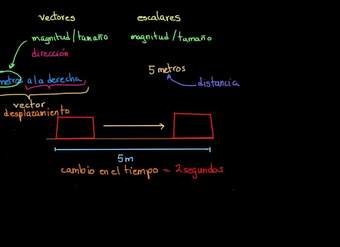 vectores
escalares
magnitud/tamaño
magnitud/tamaño
dirección
5 metros
metros a la derecha
distancia
vector
desplazamiento
5m
cambio en el tiempo = 2 segundos